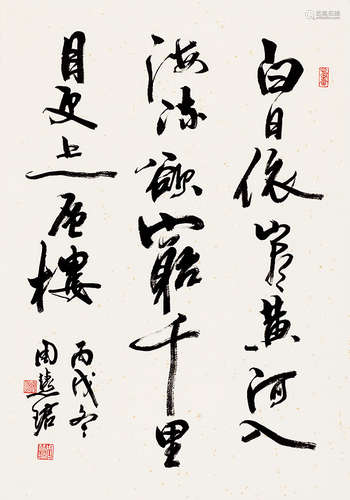 白日依山盡黃河入
海流欲窮千里
目更上一層樓
丙戌冬
周慧珺